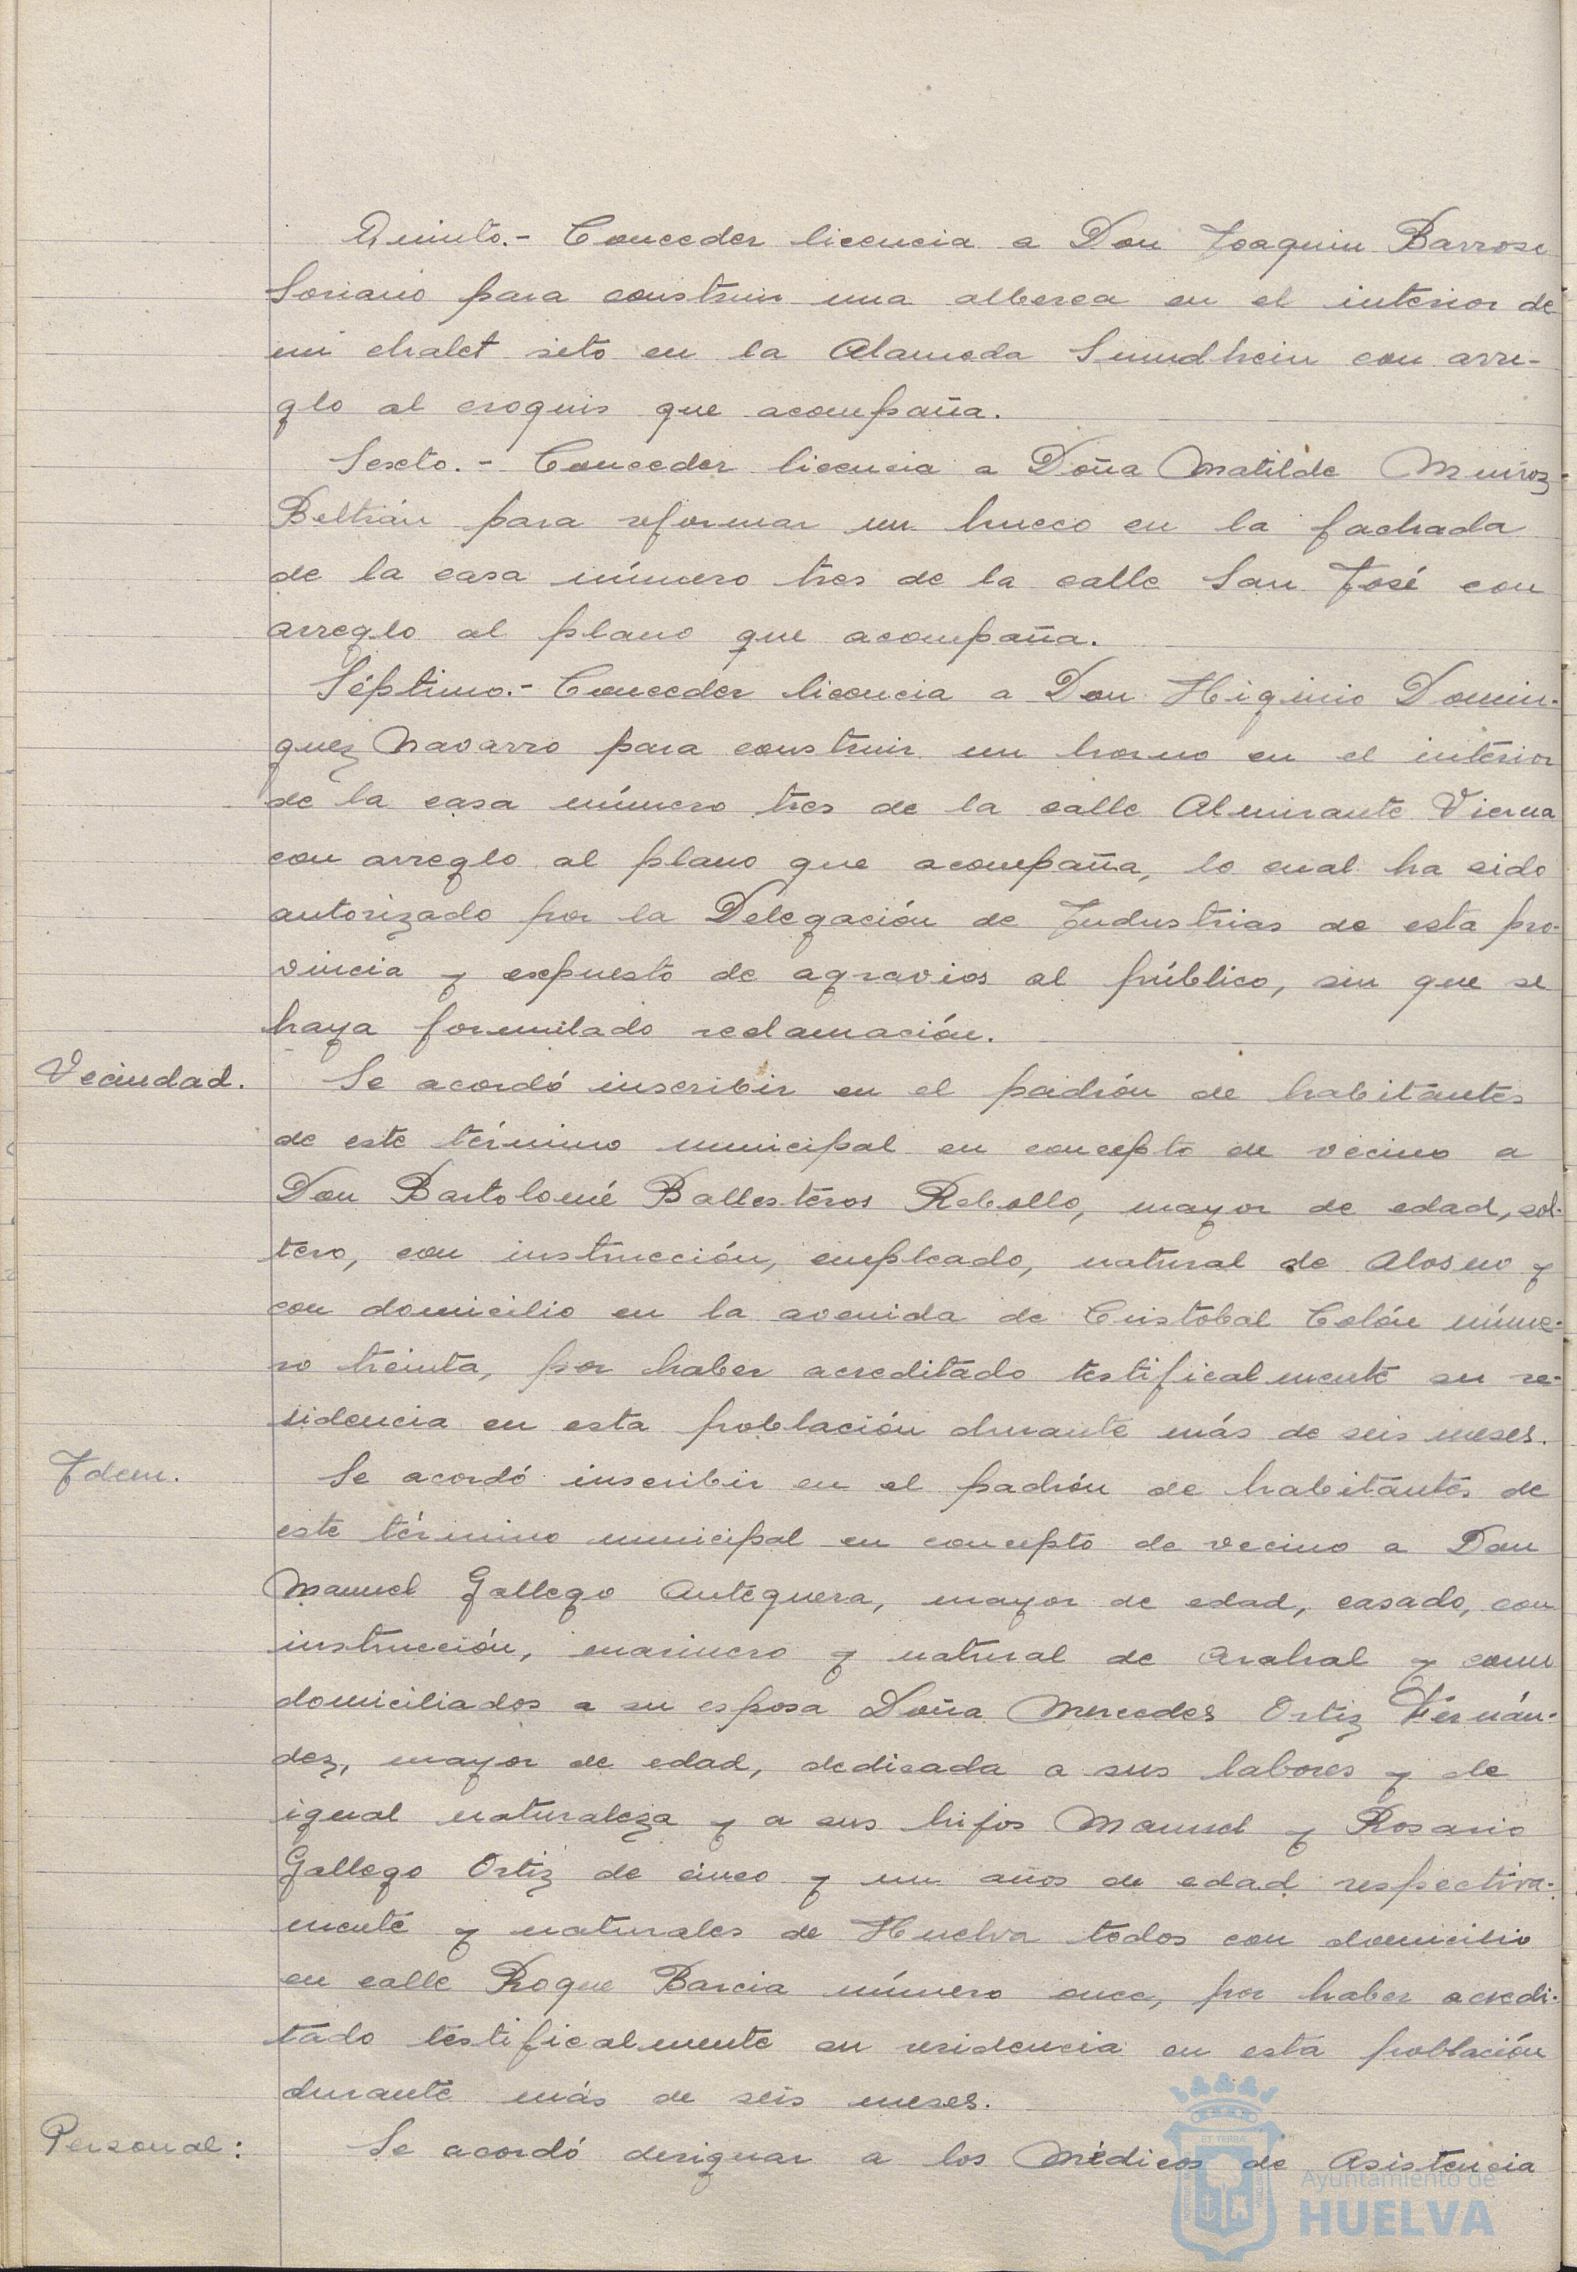 Quinto.- Conceder licencia a Don Joaquin Barroso
Soriano para construir una alberca en el interior de
un chalet sito en la Alameda Sumdhein con arre-
glo al croquis que acompaña.
Sexto.- Conceder licencia a Doña Matilde Muñoz
Beltrán para reformar un hueco en la fachada
de la casa número tres de la calle San José con
arreglo al plano que acompaña.
Séptimo.- Conceder licencia a Don Higinio Domin-
guez Navarro para construir un horno en el interior
de la casa número tres de la calle Almirante Vierna
con arreglo al plano que acompaña, lo cual ha sido
autorizado por la Delegación de Industrias de esta pro-
vincia y expuesto de agravios al público, sin que se
haya formulado reclamación.
Vecindad. Se acordó inscribir en el padrón de habitantes
de este término municipal en concepto de vecino a
Don Bartolomé Ballesteros Rebollo, mayor de edad, sol-
tero, con instrucción, empleado, natural de Alosno y
con domicilio en la avenida de Cristobal Colón núme-
ro treinta, por haber acreditado testificalmente su re-
sidencia en esta población durante más de seis meses.
Idem. Se acordó inscribir en el padrón de habitantes de
este término municipal en concepto de vecino a Don
Manuel Gallego Antequera, mayor de edad, casado, con
instrucción, marinero y natural de Arahal y como
domiciliados a su esposa Doña Mercedes Ortiz Fernán-
dez, mayor de edad, dedicada a sus labores y de
igual naturaleza y a sus hijos Manuel y Rosario
Gallego Ortiz de cinco y un años de edad respectiva-
mente y naturales de Huelva todos con domicilio
en calle Roque Barcia número once, por haber acredi-
tado testificalmente su residencia en esta población
durante más de seis meses.
Personal: Se acordó designar a los Médicos de Asistencia
ET TERRA
Ayuntamiento de
HUELVA